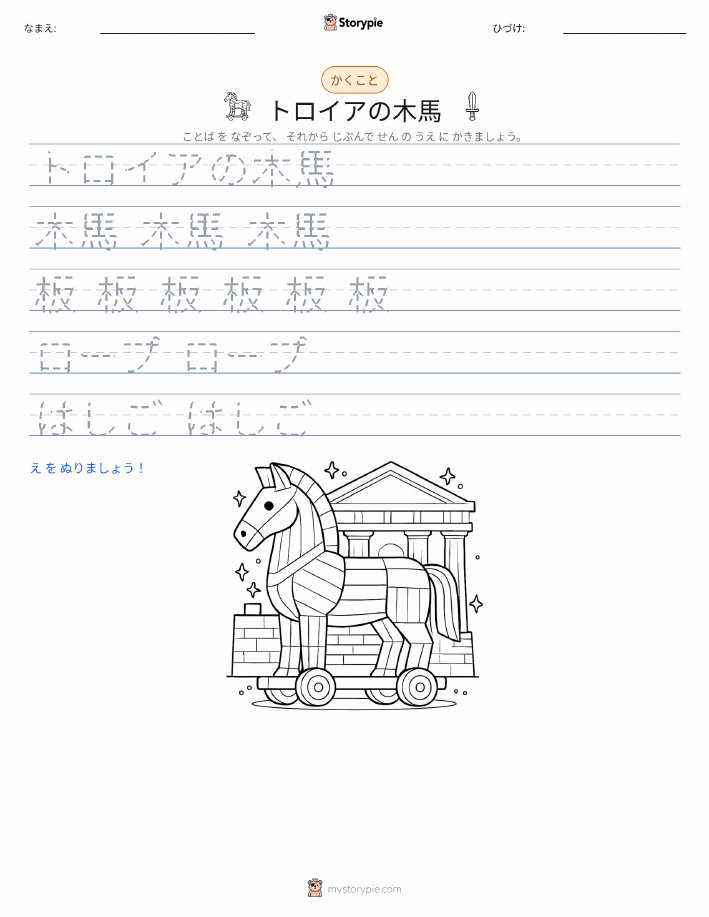 なまえ:
Storypie
ひづけ:
かくこと
トロイアの木馬
ことば を なぞって、 それから じぶんで せん の うえ に かきましょう。
トロイアの木馬
木馬 木馬 木馬
板 板 板 板 板 板
ロープ ロープ
はしご はしご
え を ぬりましょう！
mystorypie.com